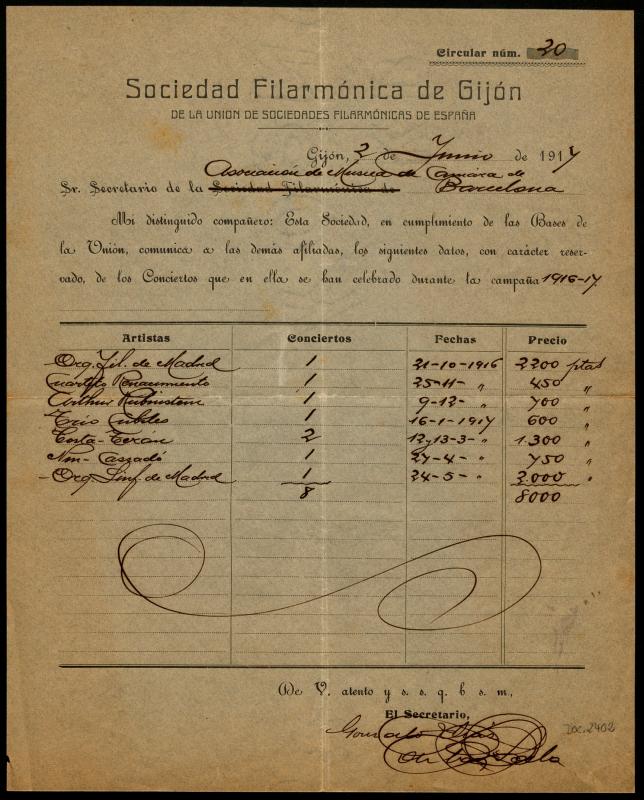 Circular núm. 20
Sociedad Filarmónica de Gijón
DE LA UNION DE SOCIEDADES FILARMÓNICAS DE ESPAÑA
Gijón, 2 de Junio de 1917
Asociación de Musica de Camara de
Sr. Secretario de la Sociedad Filarmónica de Barcelona
Mi distinguido compañero: Esta Sociedad, en cumplimiento de las Bases de
la Unión, comunica a las demás afiliadas, los siguientes datos, con carácter reser-
vado, de los Conciertos que en ella se han celebrado durante la campaña 1916-17
Artistas Conciertos Fechas Precio
Orq. Fil. de Madrid 1 21-10-1916 2200 ptas
Cuarteto Renacimiento 1 25-11- " 450 "
Arthur Rubinstein 1 9-12- " 700 "
Trio Cubiles 1 16-1-1917 600 "
Costa-Teran 2 12y13-3- " 1.300 "
Nin-Cassadó 1 27-4- " 750 "
Orq. Sinf. de Madrid 1 24-5- " 2.000 "
8 8000
De V. atento y s. s. q. b s. m,
El Secretario,
Gonzalo
Doc. 2402